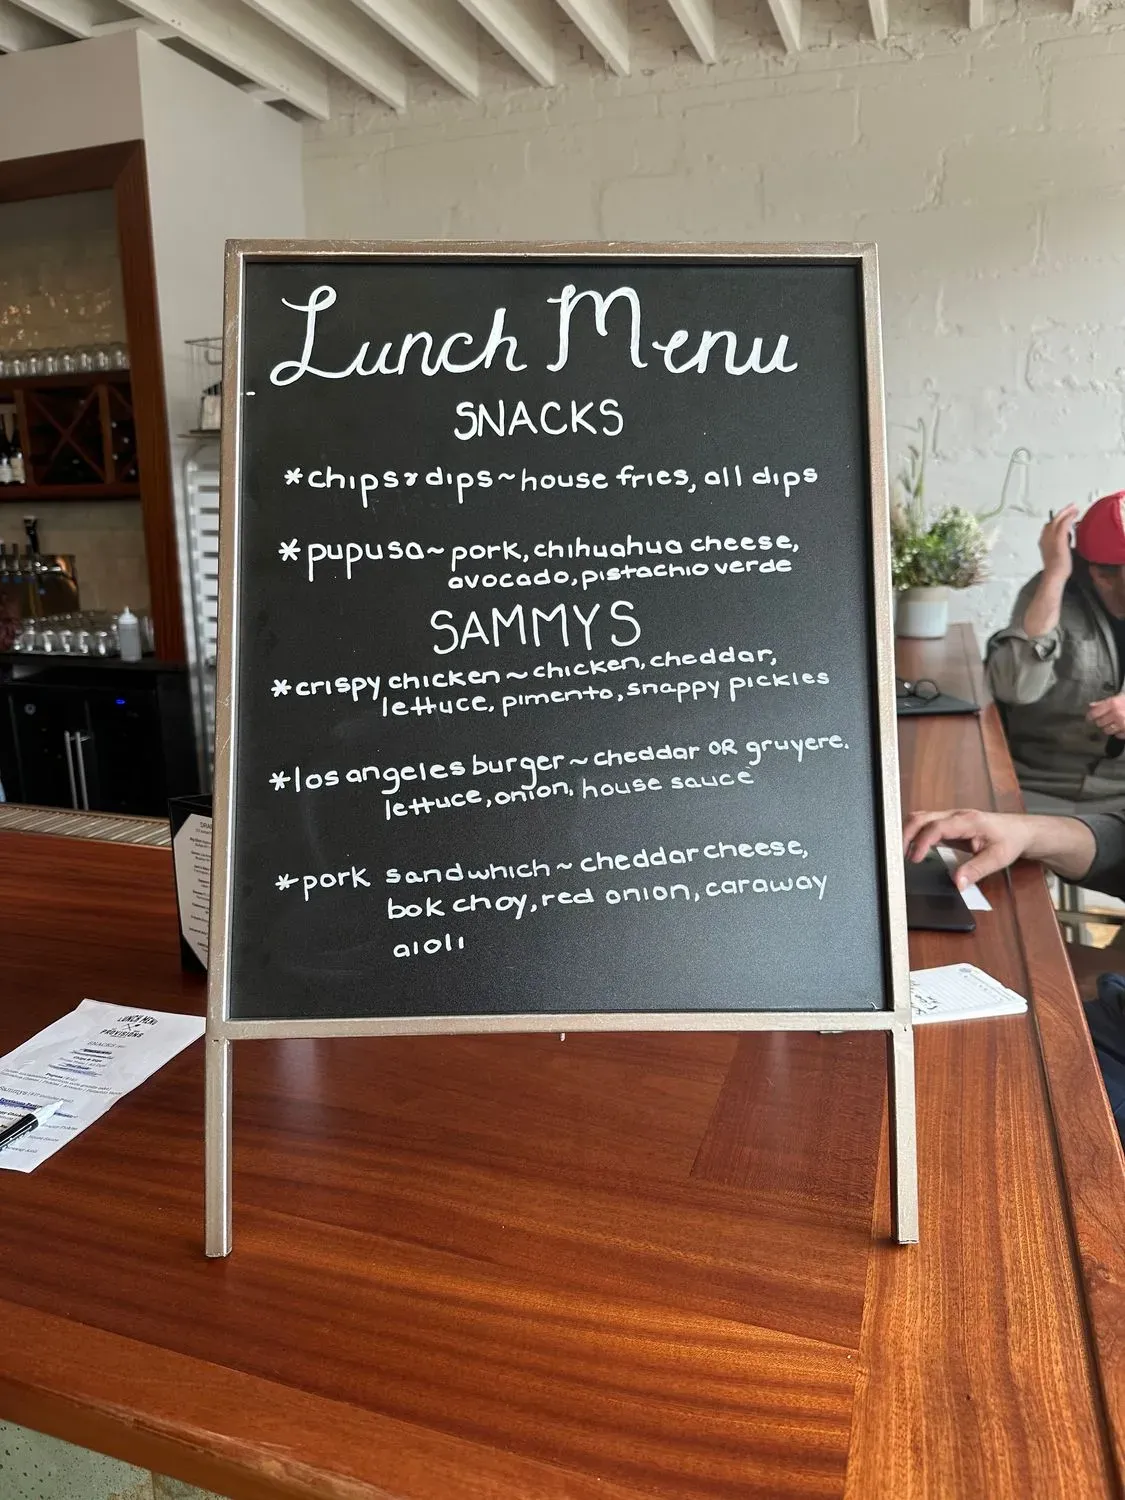 Lunch Menu
SNACKS
*chips & dips ~ house fries, all dips
*pupusa ~ pork, chihuahua cheese,
avocado, pistachio verde
SAMMYS
*crispy chicken ~ chicken, cheddar,
lettuce, pimento, snappy pickles
*los angeles burger ~ cheddar OR gruyere.
lettuce, onion, house sauce
*pork sandwhich ~ cheddar cheese,
bok choy, red onion, caraway
aioli
LUNCH MENU
PROVISIONS
SNACKS
Chips & Dips
Pupusa
Sammys